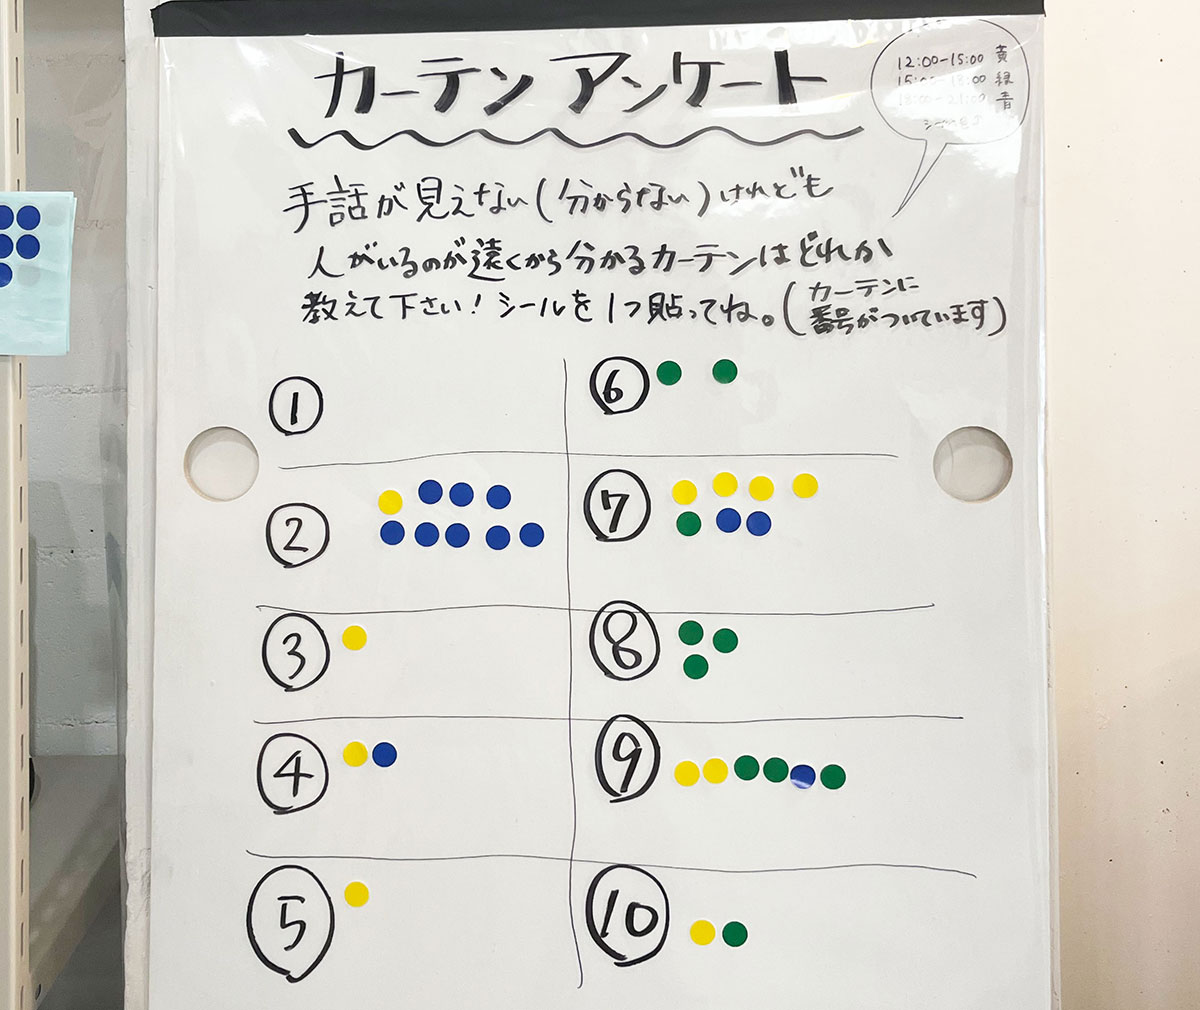 カーテン アンケート
12:00-15:00 黄
15:00-18:00 緑
18:00-21:00 青
手話が見えない(分からない)けれども
人がいるのが遠くから分かるカーテンはどれか
教えて下さい!シールを1つ貼ってね。(カーテンに
番号がついています)
①
②
③
④
⑤
⑥
⑦
⑧
⑨
⑩